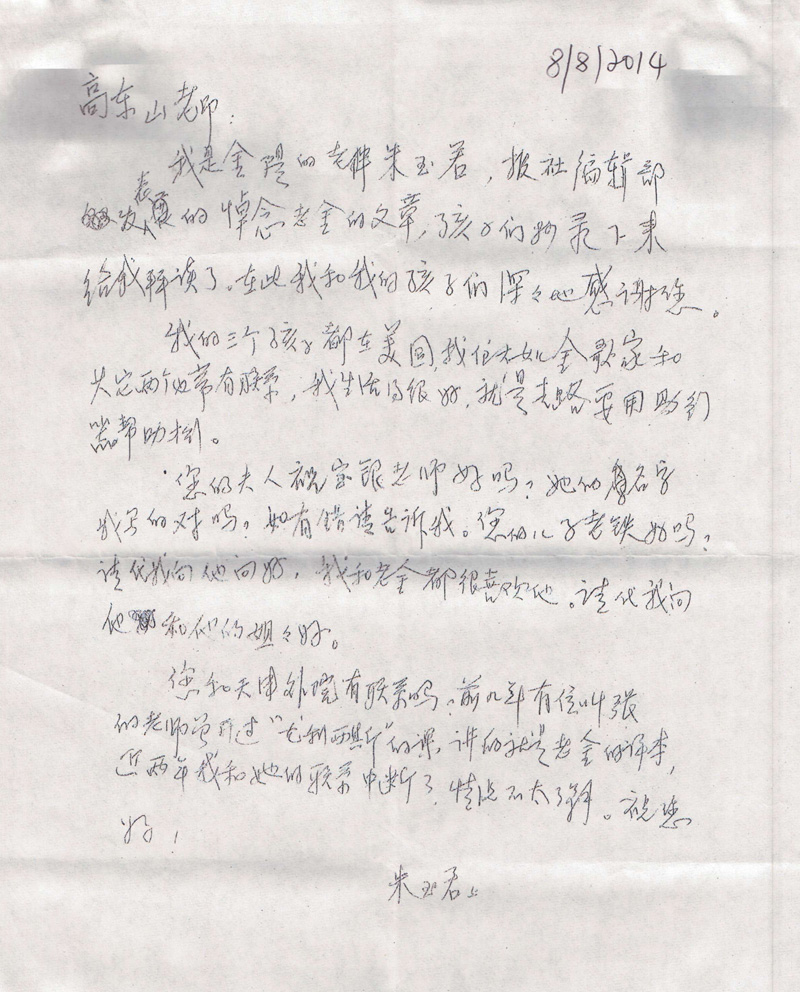 8/8/2014
高东山老师:
我是金隄的老伴朱玉若,报社编辑部
发表的悼念老金的文章,孩子们抄录下来
给我拜读了。在此我和我的孩子们深々地感谢您。
我的三个孩子都在美国,我住大女儿金歌家和
其它两个也常有联系,我生活得很好,就是走路要用助行
器帮助挪。
您的夫人祝宝银老师好吗?她的名字
我写的对吗?如有错请告诉我。您的儿子老铁好吗?
请代我向他问好,我和老金都很喜欢他。请代我向
他和他的姐々好。
您和天津外院有联系吗?前几年有位叫张
的老师曾开过"尤利西斯"的课,讲的就是老金的译本,
近两年我和她的联系中断了,情况不太了解。祝您
好!
朱玉若上